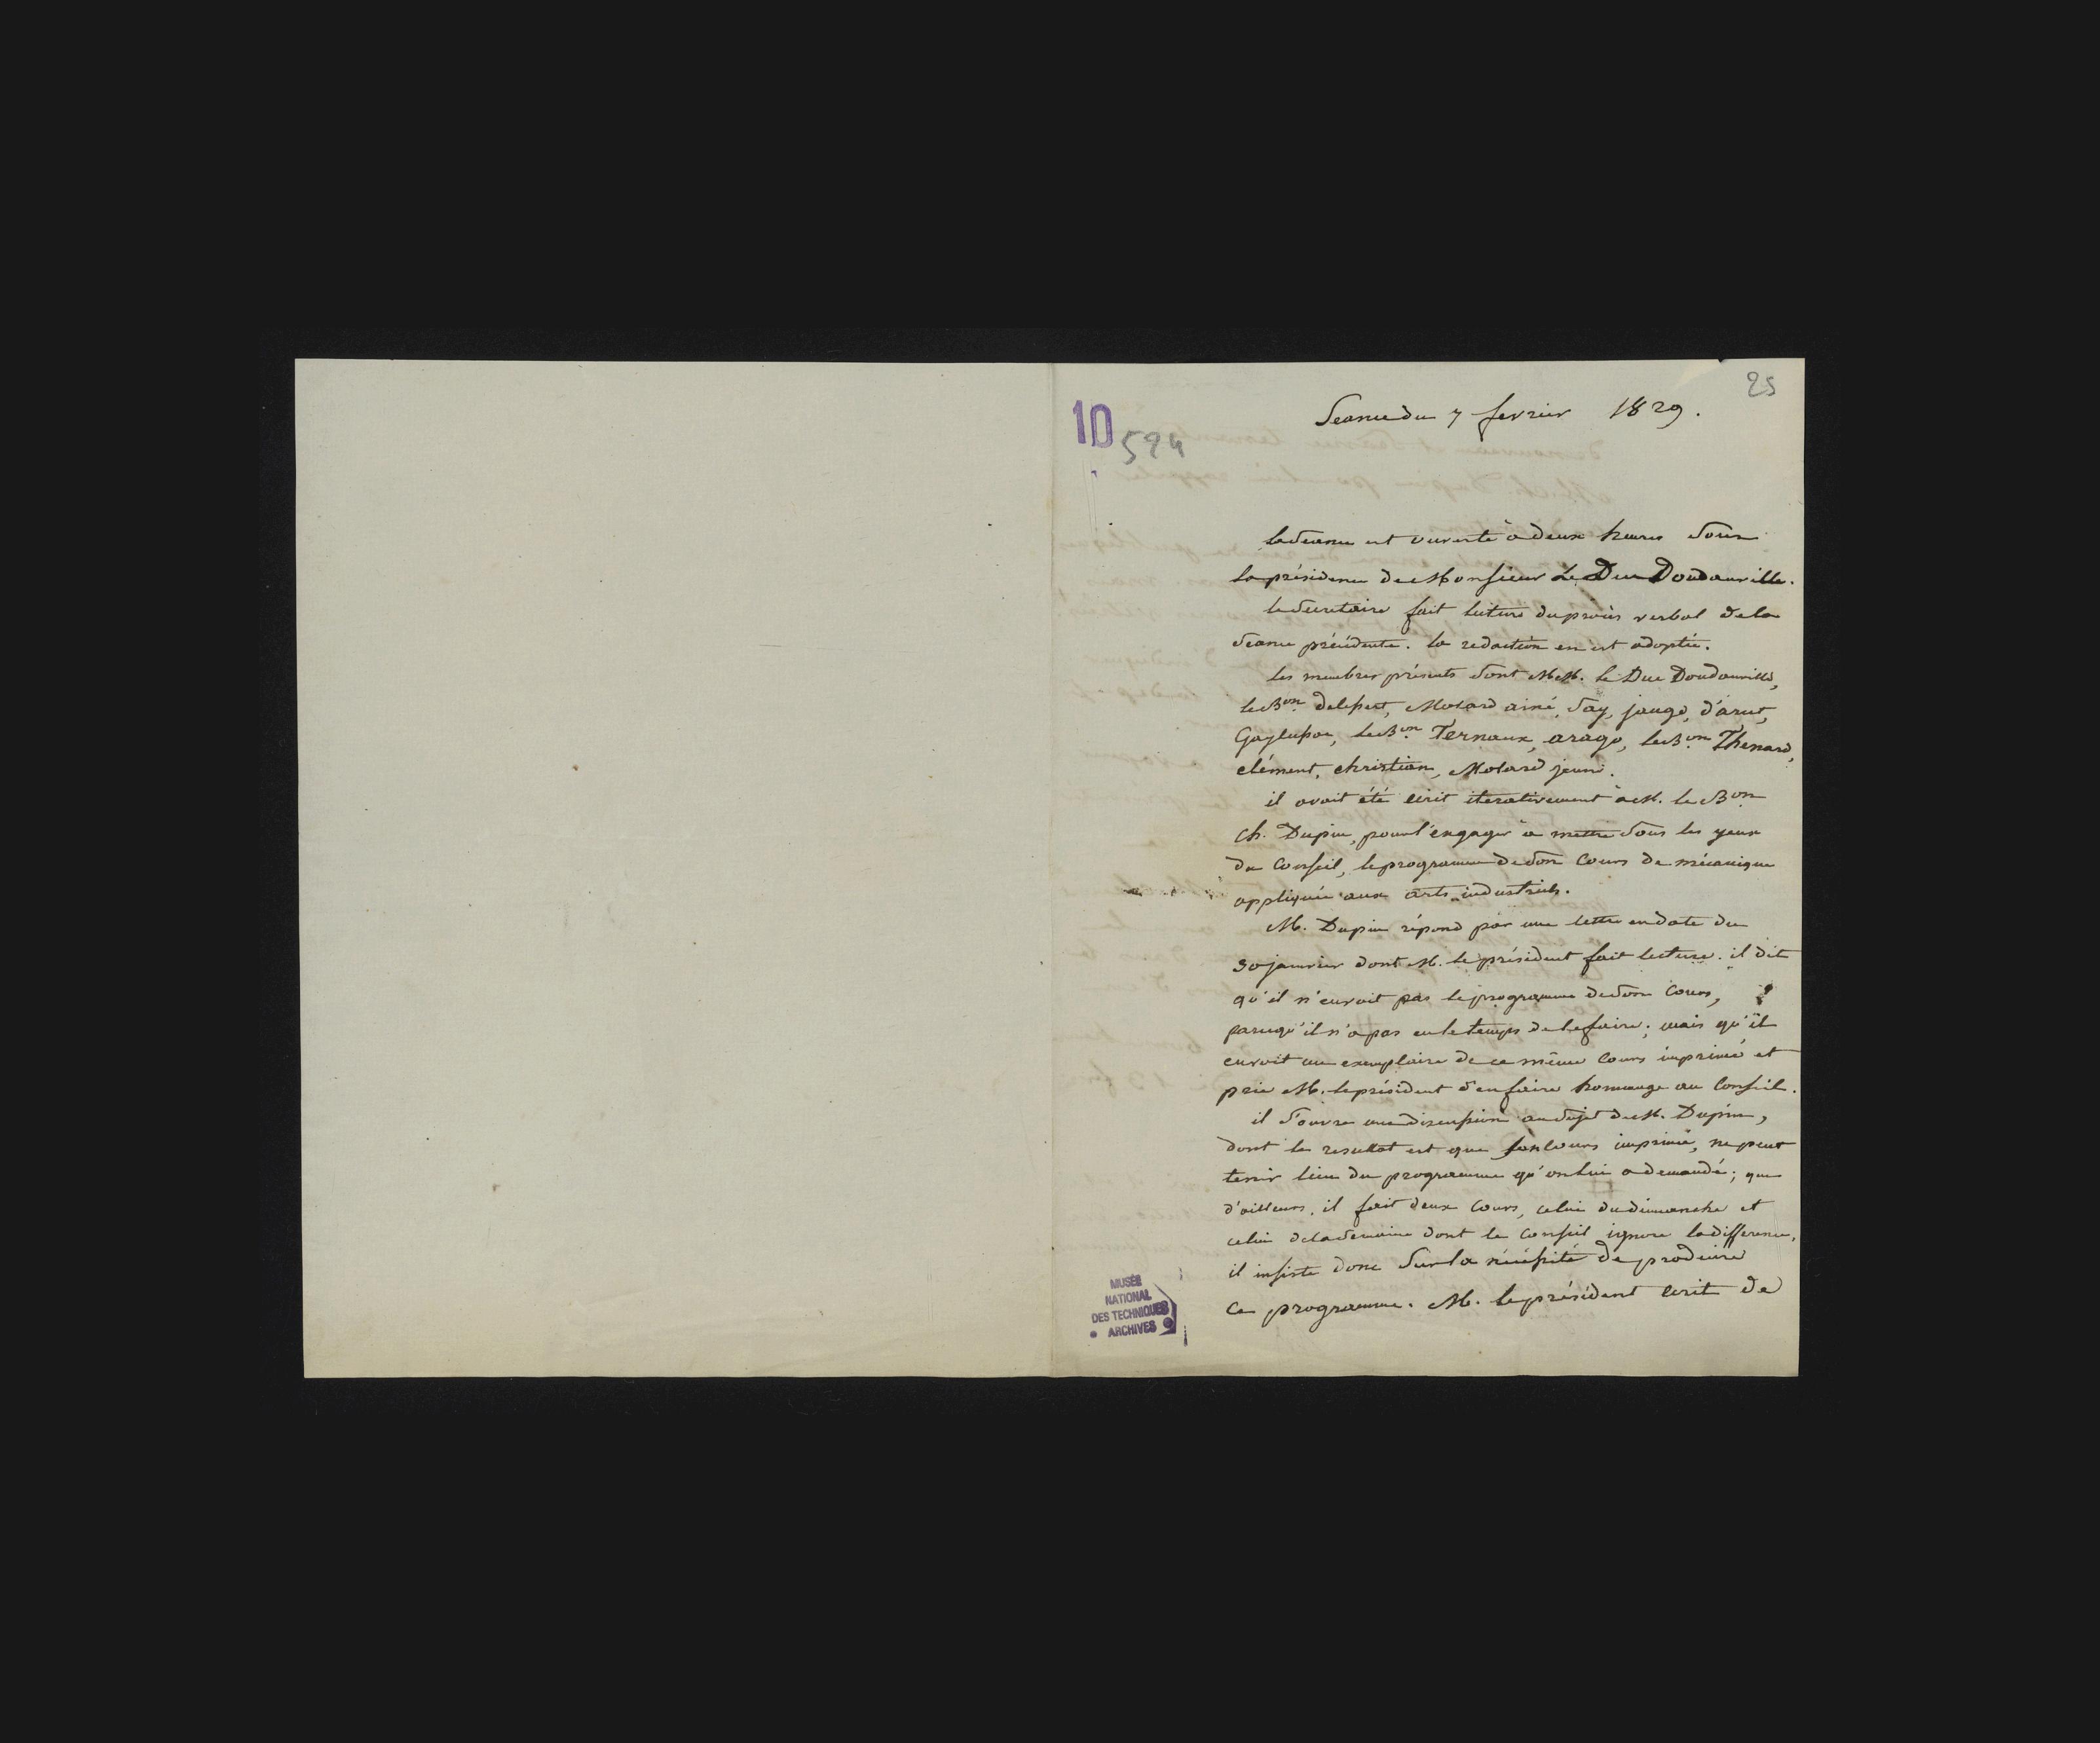 25
Seance du 7 fevrier 1829.
10
594
la Seance est ouverte à deux heures Sous
la présidence de Monsieur Le Duc Doudauville.
le Secretaire fait lecture du procès verbal de la
Seance précédente. la redaction en est adoptée.
Les membres présents Sont MM. le Duc Doudauville,
le Bon. delessert, Molard ainé, Say, jauge, d'arcet,
Gaylussac, le Bon. Ternaux, arago, le Bon Thenard,
clément, christian, Molard jeune.
il avoit été écrit iterativement à M. le Bon
Ch. Dupin, pour l'engager à mettre Sous les yeux
du Conseil, le programme de Son Cours de mécanique
appliquée aux arts industriels.
M. Dupin répond par une lettre en date du
30 janvier dont M. le président fait lecture. il dit
qu'il n'envoit pas le programme de Son Cours,
parcequ'il n'a pas eu le temps de le faire; mais qu'il
envoit un exemplaire de ce même Cours imprimé et
prie M. le président d'en faire hommage au Conseil.
il S'ouvre une discussion au Sujet de M. Dupin,
dont le resultat est que son Cours imprimé, ne peut
tenir lieu du programme qu'on lui a demandé; que
d'ailleurs, il fait deux Cours, celui du dimanche et
celui de la Semaine dont le Conseil ignore la difference,
il insiste donc Sur la nécéssité de produire
Ce programme. M. le président écrit de
MUSÉE
NATIONAL
DES TECHNIQUES
ARCHIVES